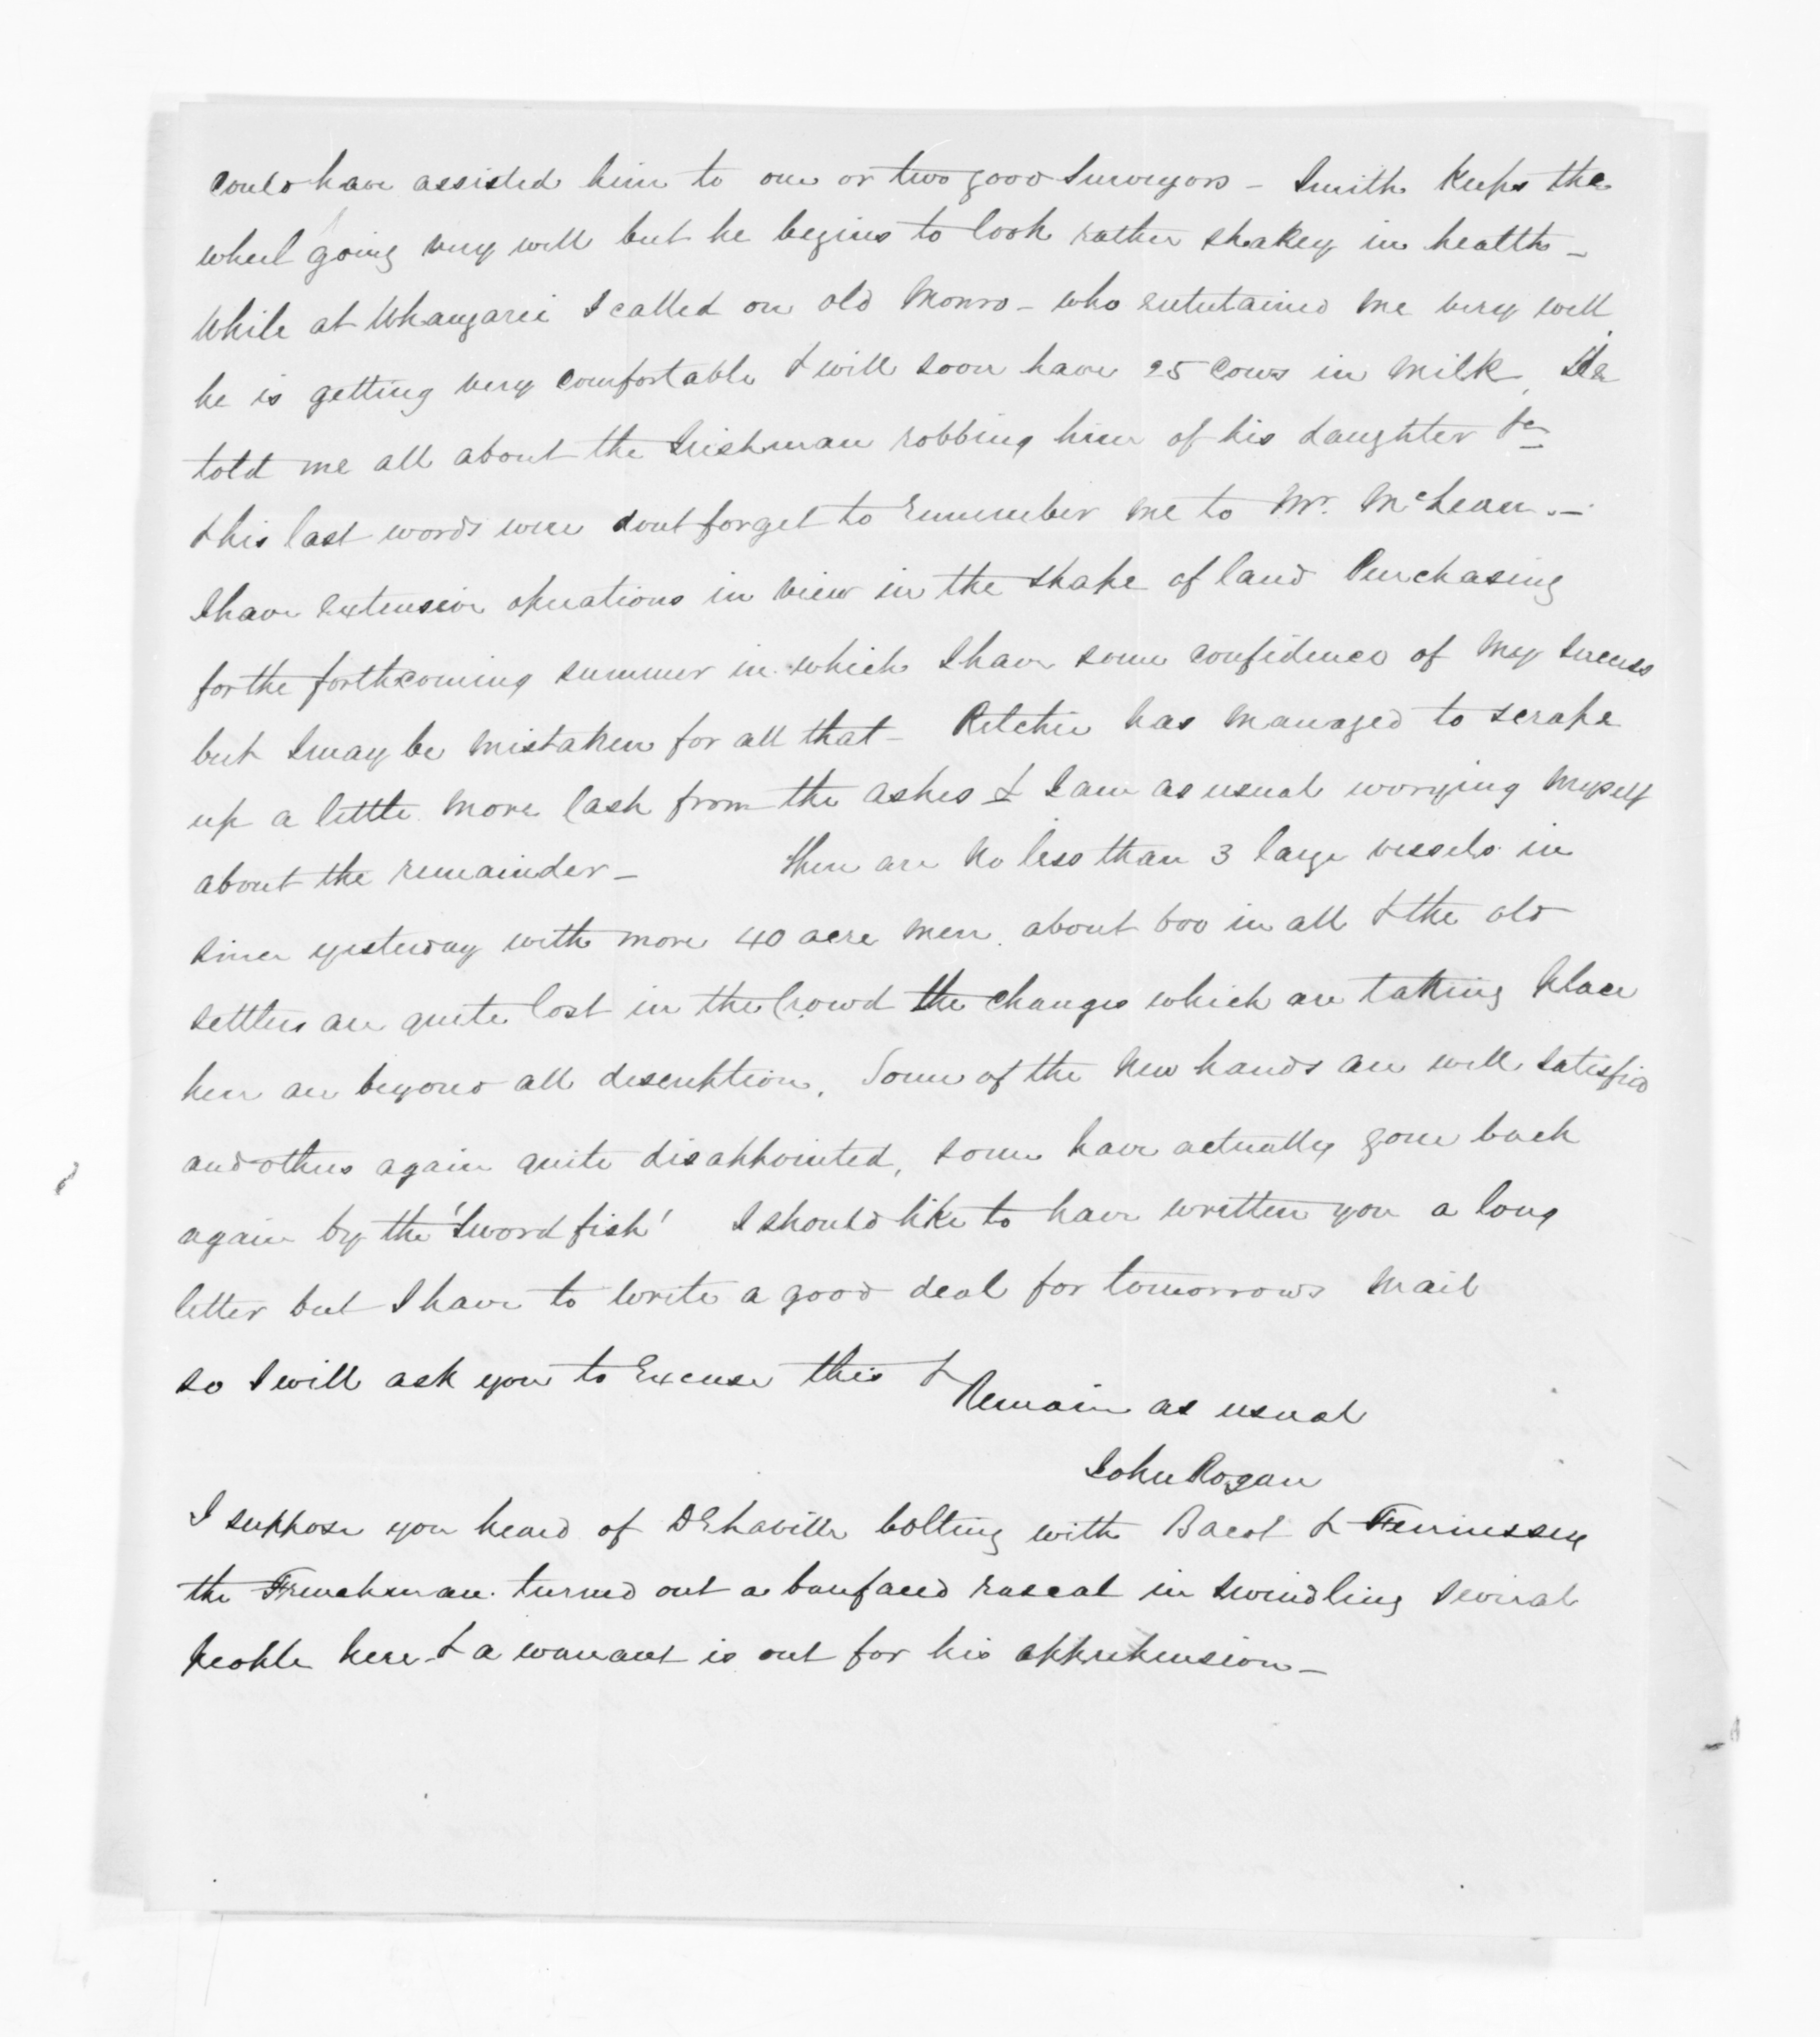 could have assisted him to one or two good Surveyors - Smith keeps the
wheel going very well but he begins to look rather shakey in health -
While at Whangarei I called on old Monro - who entertained me very well
he is getting very comfortable & will soon have 25 Cows in Milk, He
told me all about the Irishman robbing him of his daughter &c
& his last words were dont forget to remember me to Mr. McLean. -
I have extensive operations in view in the shape of land Purchasing
for the forthcoming summer in which I have some confidence of My success
but I may be mistaken for all that - Ritchie has managed to scrape
up a little more Cash from the ashes & I am as usual worrying Myself
about the remainder - There are no less than 3 large vessels in
since yesterday with more 40 acre men about 600 in all & the old
settlers are quite lost in the Crowd the changes which are taking place
here are beyond all description. Some of the New hands are well satisfied
and others again quite disappointed, some have actually gone back
again by the 'Sword fish' I should like to have written you a long
letter but I have to write a good deal for tomorrows Mail
so I will ask you to Excuse this &
Remain as usual
John Rogan
I suppose you heard of bolting with Bacot &
the Frenchman turned out a barefaced rascal in swindling several
people here & a warrant is out for his apprehension -